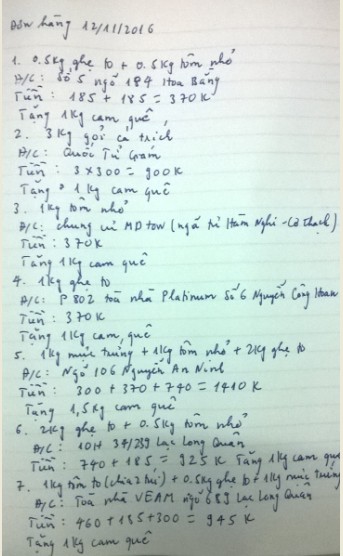 Đơn hàng 12/11/2016
1. 0.5kg ghẹ to + 0.5kg tôm nhỏ
Đ/C: Số 5 ngõ 184 Hoa Bằng
Tiền: 185 + 185 = 370K
Tặng 1kg cam quê
2. 3kg gỏi cá trích
Đ/C: Quốc Tử Giám
Tiền: 3 x 300 = 900K
Tặng 1kg cam quê
3. 1kg tôm nhỏ
Đ/C: chung cư MD tow (ngã tư Hàm Nghi - Lê Thạch)
Tiền: 370K
Tặng 1kg cam quê
4. 1kg ghẹ to
Đ/C: P 802 toà nhà Platinum Số 6 Nguyễn Công Hoan
Tiền: 370K
Tặng 1kg cam quê
5. 1kg mực trứng + 1kg tôm nhỏ + 2kg ghẹ to
Đ/C: Ngõ 106 Nguyễn An Ninh
Tiền: 300 + 370 + 740 = 1410K
Tặng 1,5kg cam quê
6. 2kg ghẹ to + 0.5kg tôm nhỏ
Đ/C: 10H 34/239 Lạc Long Quân
Tiền: 740 + 185 = 925K Tặng 1kg cam quê
7. 1kg tôm to (chia 2 túi) + 0.5kg ghẹ to + 1kg mực trứng
Đ/C: Toà nhà VEAM ngõ 689 Lạc Long Quân
Tiền: 460 + 185 + 300 = 945K
Tặng 1kg cam quê